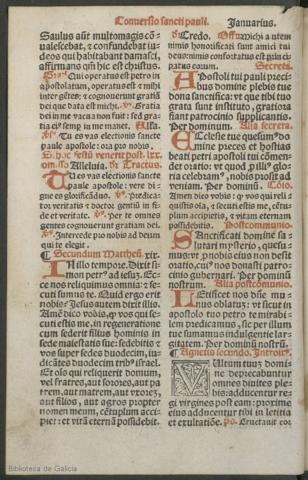 Conversio sancti pauli. Januarius.
Saulus aūt multomagis cō-
ualescebat, et confundebat iu-
deos qui habitabant damasci,
affirmans qm̄ hic est christus.
Qui operatus est petro in
apostolatum, operatus est mihi
inter gētes: et cognouerunt gratiā
dei que data est michi. Gratia
dei in me vacua non fuit: sed gra-
tia ei⁹ semp in me manet. Alla.
Tu es vas electionis sancte
paule apostole: ora pro nobis.
Si hoc festū venerit post lxx.
omisso Alleluia. Tractus.
Tu es vas electionis sancte
paule apostole: vere di-
gne es glorificādus. Predica-
tor veritatis et doctor gentiū in fi-
de et veritate. Per te omnes
gentes cognouerunt gratiam dei.
Intercede pro nobis ad deum
qui te elegit.
Secundum Mattheū. xix.
In illo tempore. Dixit si-
mon petrus ad iesuz. Ec-
ce nos reliquimus omnia: et se-
cuti sumus te. Quid ergo erit
nobis? Jesus autem dixit illis.
Amē dico vobis, qp vos qui se-
cuti estis me, in regeneratione
cum sederit filius hominis in
sede maiestatis sue: sedebitis et
vos super sedes duodecim, iu-
dicātes duodecim trib⁹ israel.
Et oīs qui reliquerit domum,
vel fratres, aut sorores, aut pa-
trem, aut matrem, aut vxorez,
aut filios, aut agros propter
nomen meum, cētuplum acci-
piet: et vitā eternā possidebit.
Credo. Offm̄ Michi autem
nimis honorificati sunt amici tui
deus: nimis confortatus est prin-
patus eorum. Secreta.
Apostoli tui pauli preci-
bus domine plebis tue
dona sanctifica: vt que tibi tuo
grata sunt instituto, gratiora
fiant patrocinio supplicantis.
Per dominum. Alia secreta.
Ecclesie tue quesum⁹ do-
mine preces et hostias
beati petri apostoli tui cōmen-
det oratio: vt quod p illi⁹ glo-
ria celebram⁹, nobis prosit ad
veniam. Per dominū. Cōio.
Amen dico vobis: qp vos qui reli-
quistis oīa, et secuti estis me, cētu-
plum accipietis, et vitam eternam
possidebitis. Postcommunio.
Sanctificati domine sa-
lutari mysterio, quesu-
mus: vt pro nobis eius non desit
oratio, cui⁹ nos donasti patro-
cinio gubernari. Per dominū
nostrum. Alia postcomunio.
Letificet nos dn̄e mu-
nus oblatū: vt sicut in
apostolo tuo petro te mirabi-
lem predicamus, sic per illum
tue sumamus indulgentie lar-
gitatem. Per dominū nostrum.
Agnetis secundo. Introit⁹.
Vultum tuuz domi-
ne deprecabuntur
omnes diuites ple-
bis: adducentur re-
gi virgines post eam: proxime
eius adducentur tibi in letitia
et exultatiōe. ps. Eructauit cor
Biblioteca de Galicia